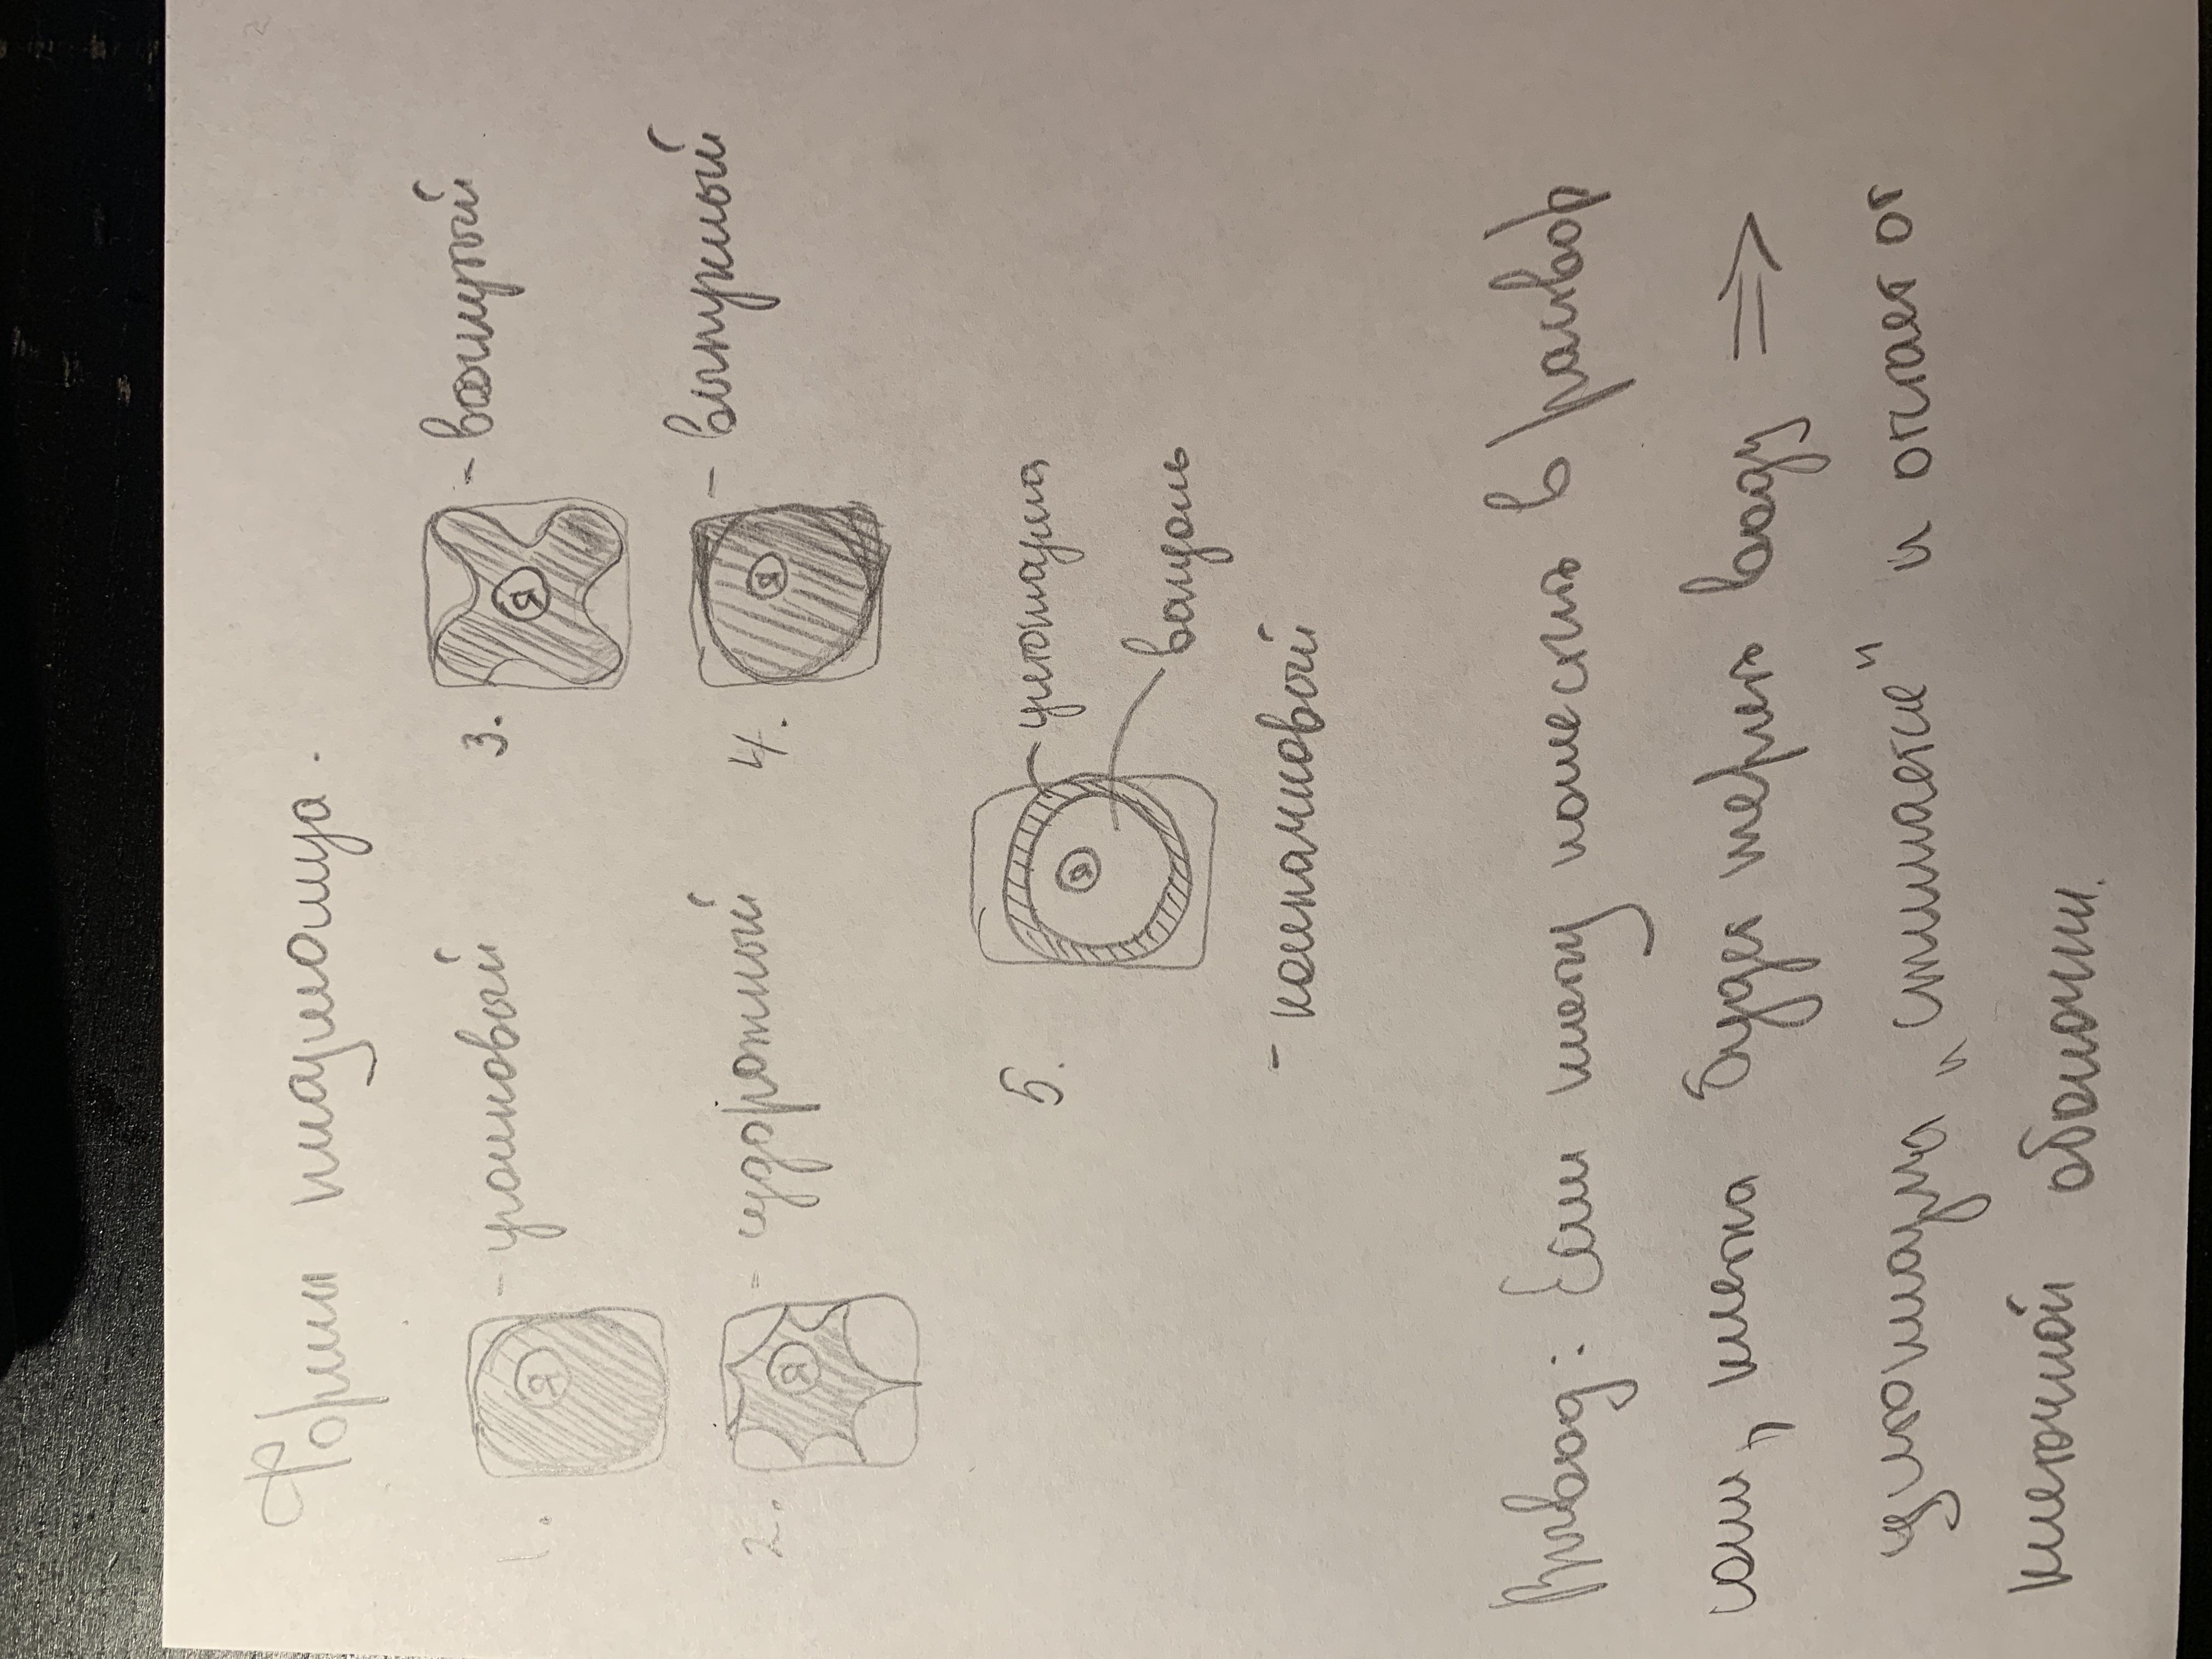 Формы плазмолиза.
1. Я - уголковый
2. Я - судорожный
3. Я - вогнутый
4. Я - выпуклый
5. Я
цитоплазма
вакуоль
- колпачковый
Вывод: Если клетку поместить в раствор
соли, клетка будет терять воду ⇒
цитоплазма „сжимается" и отстает от
клеточной оболочки.